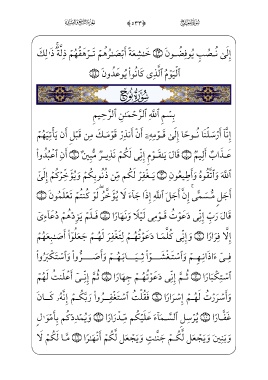 إِلَىٰ نُصُبٍ يُوفِضُونَ ۝ خَٰشِعَةً أَبْصَٰرُهُمْ تَرْهَقُهُمْ ذِلَّةٌ ذَٰلِكَ
ٱلْيَوْمُ ٱلَّذِى كَانُوا۟ يُوعَدُونَ ۝
سُورَةُ نُوحٍ
بِسْمِ ٱللَّهِ ٱلرَّحْمَٰنِ ٱلرَّحِيمِ
إِنَّآ أَرْسَلْنَا نُوحًا إِلَىٰ قَوْمِهِۦٓ أَنْ أَنذِرْ قَوْمَكَ مِن قَبْلِ أَن يَأْتِيَهُمْ
عَذَابٌ أَلِيمٌ ۝ قَالَ يَٰقَوْمِ إِنِّى لَكُمْ نَذِيرٌ مُّبِينٌ ۝ أَنِ ٱعْبُدُوا۟
ٱللَّهَ وَٱتَّقُوهُ وَأَطِيعُونِ ۝ يَغْفِرْ لَكُم مِّن ذُنُوبِكُمْ وَيُؤَخِّرْكُمْ إِلَىٰٓ
أَجَلٍ مُّسَمًّى إِنَّ أَجَلَ ٱللَّهِ إِذَا جَآءَ لَا يُؤَخَّرُ لَوْ كُنتُمْ تَعْلَمُونَ ۝
قَالَ رَبِّ إِنِّى دَعَوْتُ قَوْمِى لَيْلًا وَنَهَارًا ۝ فَلَمْ يَزِدْهُمْ دُعَآءِىٓ
إِلَّا فِرَارًا ۝ وَإِنِّى كُلَّمَا دَعَوْتُهُمْ لِتَغْفِرَ لَهُمْ جَعَلُوٓا۟ أَصَٰبِعَهُمْ
فِىٓ ءَاذَانِهِمْ وَٱسْتَغْشَوْا۟ ثِيَابَهُمْ وَأَصَرُّوا۟ وَٱسْتَكْبَرُوا۟
ٱسْتِكْبَارًا ۝ ثُمَّ إِنِّى دَعَوْتُهُمْ جِهَارًا ۝ ثُمَّ إِنِّىٓ أَعْلَنتُ لَهُمْ
وَأَسْرَرْتُ لَهُمْ إِسْرَارًا ۝ فَقُلْتُ ٱسْتَغْفِرُوا۟ رَبَّكُمْ إِنَّهُۥ كَانَ
غَفَّارًا ۝ يُرْسِلِ ٱلسَّمَآءَ عَلَيْكُم مِّدْرَارًا ۝ وَيُمْدِدْكُم بِأَمْوَٰلٍ
وَبَنِينَ وَيَجْعَل لَّكُمْ جَنَّٰتٍ وَيَجْعَل لَّكُمْ أَنْهَٰرًا ۝ مَّا لَكُمْ لَا